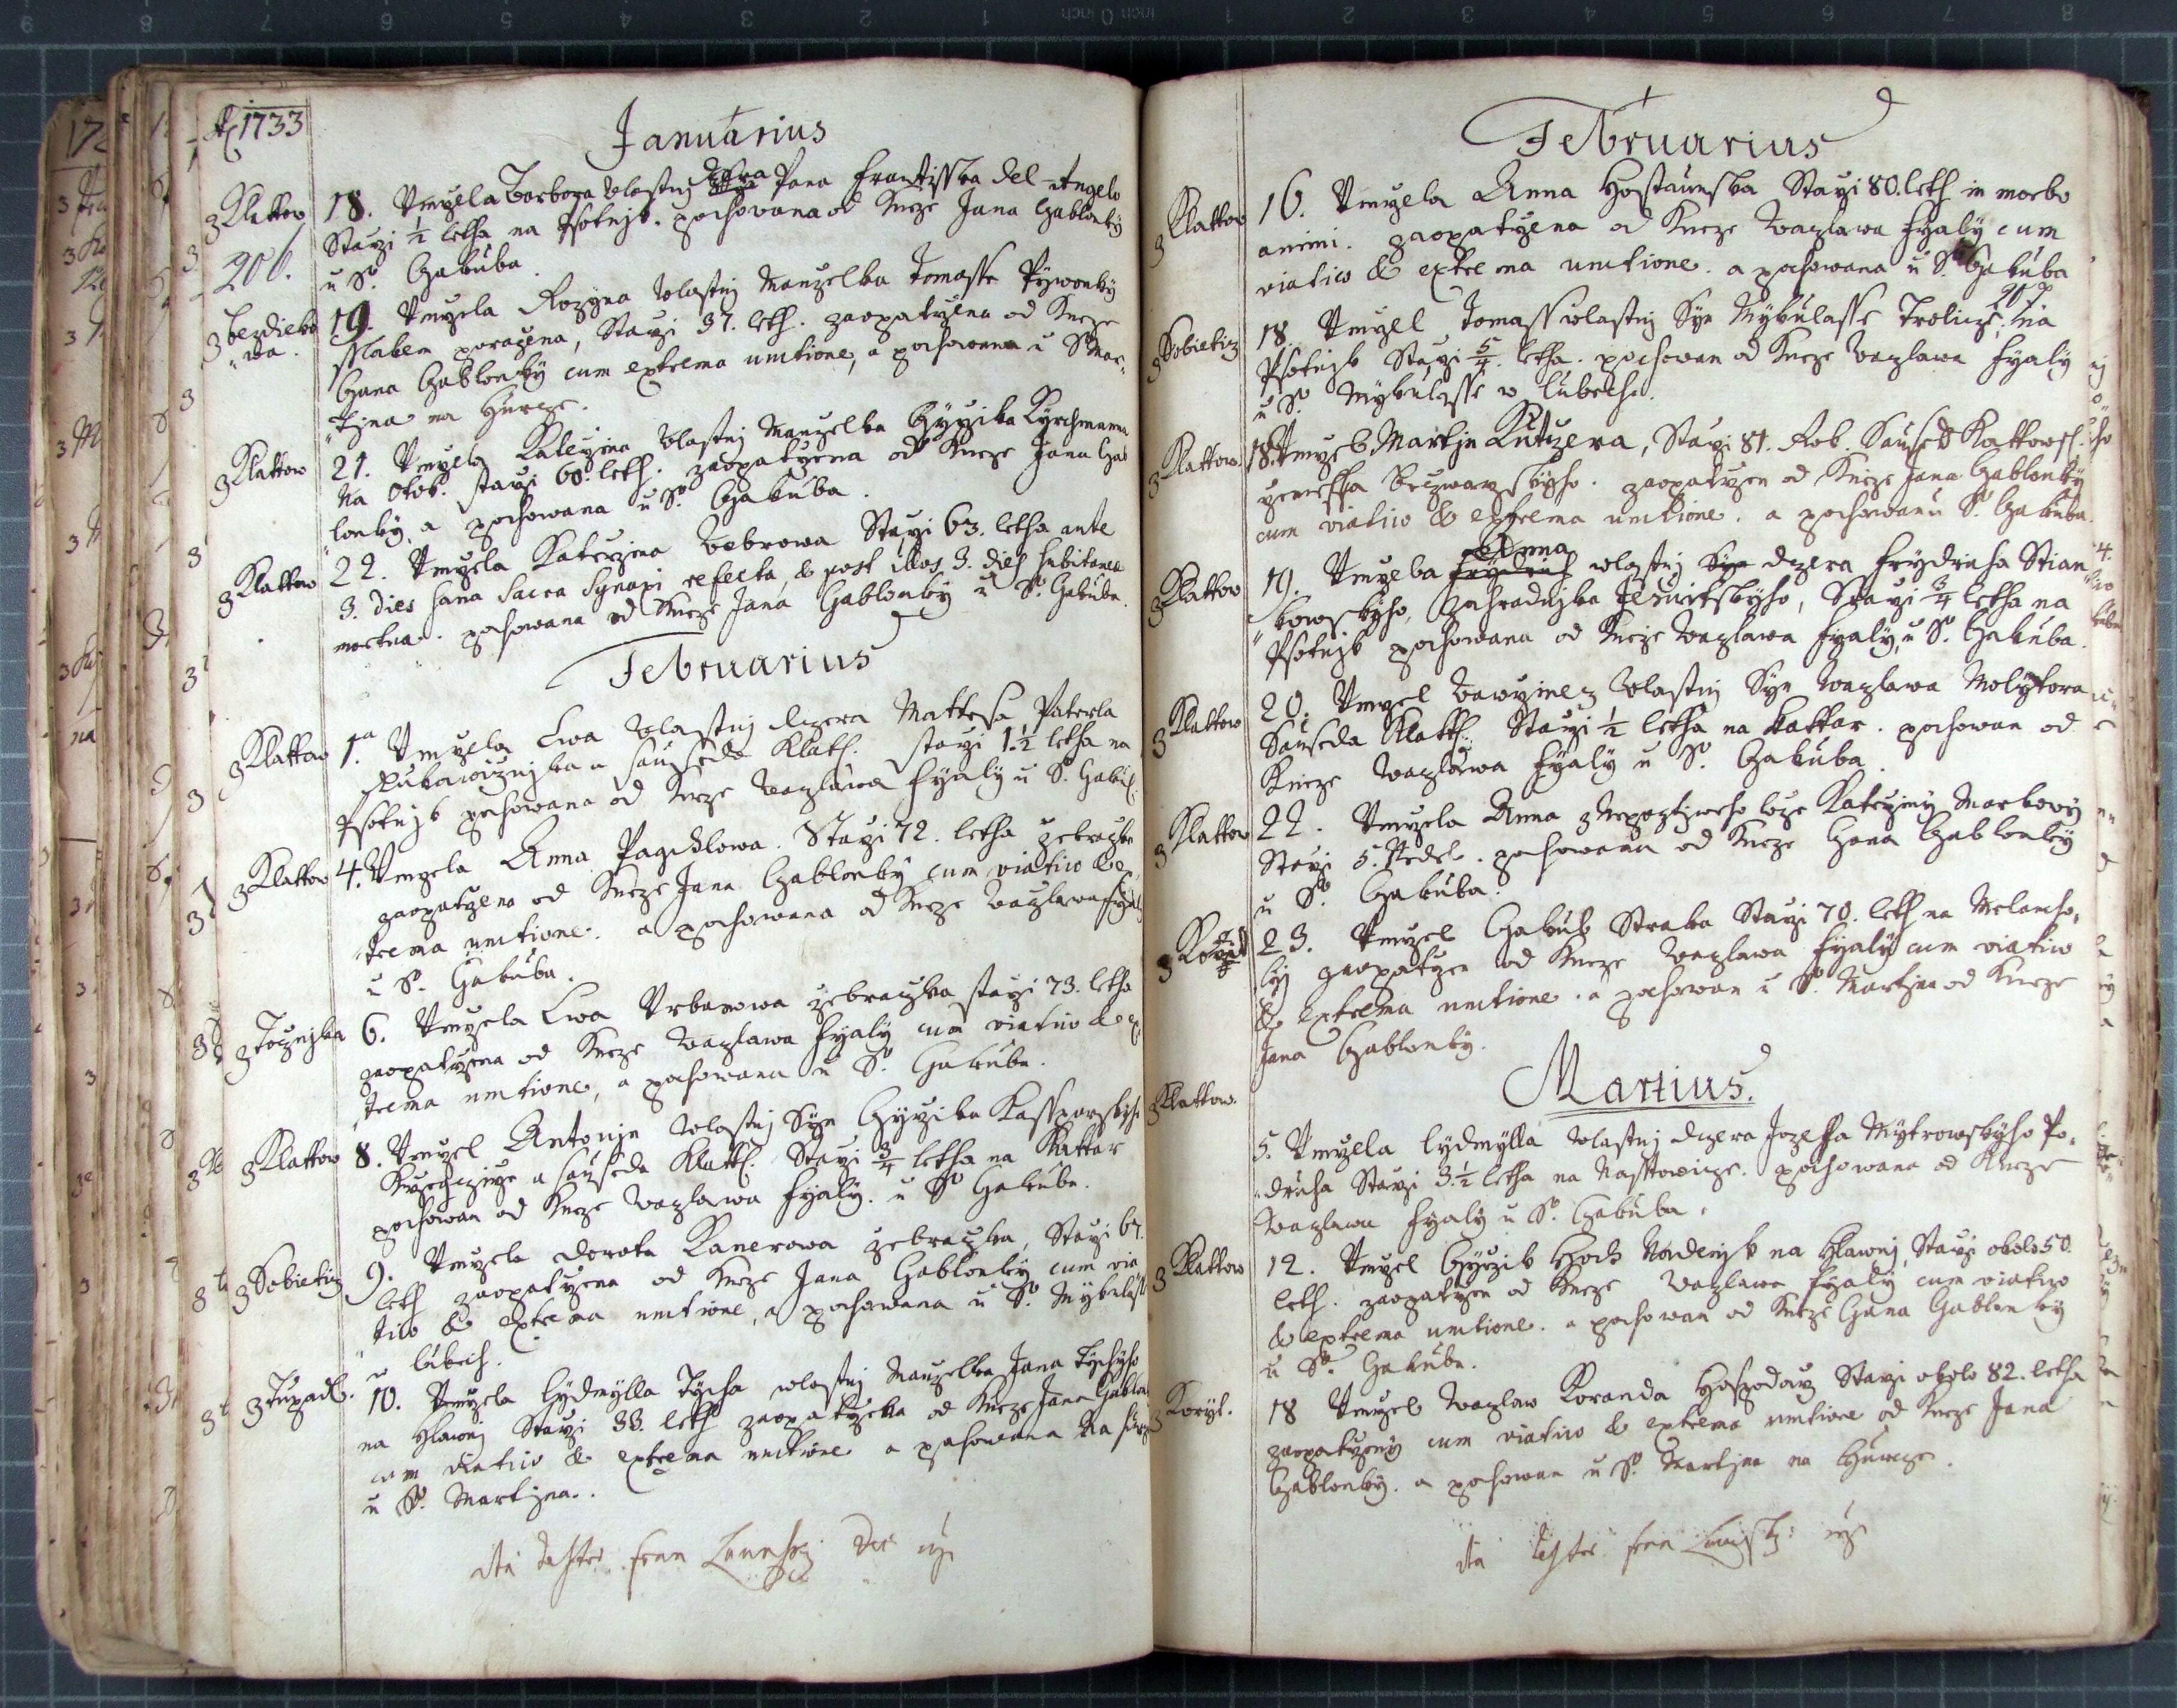 A. 1733
Januarius
z Klattow 18. Umrzela Barbora wlastnj dcera Pana Frantisska del-Angelo
206. Starzi ½ letha na Psotnjk. pochowana od Kneze Jana Gablonky
u S. Gakuba.
z Bezdieko 19. Umrzela Rozyna wlastnj Manzelka Tomasse Pywonky
wa. sslakem porazena, Starzi 37. leth. zaopatrzena od Kneze
Gana Gablonky cum extrema unctione, a pochowana u S. Mar-
tjna na Hurcze.
z Klattow 21. Umrzela Katerzina wlastnj Manzelka Girzika Kyrchmana
Na Otok. starzi 60. leth. zaopatrzena od Kneze Jana Gab
lonky, a pochowana u S. Gakuba.
z Klattow 22. Umrzela Katerzina Bebrowa Starzi 63. letha ante
3. dies sana sacra Synaxi refecta, & post illos 3. dies subitanee
mortua. pochowana od Kneze Jana Gablonky u S. Gakuba.
Februarius
z Klattow 1. Umrzela Ewa wlastnj dczera Matthesa Paterla
Rukawicznjka a sauseda Klatt. starzi 1.½ letha na
Psotnjk pochowana od Kneze Waczlawa Fyaly u S. Gakub.
z Klattow 4. Umrzela Anna Starzi 72. letha zebraczka
zaopatrzena od Kneze Jana Gablonky cum viatico & ex
trema unctione. a pochowana od Kneze Waczlawa Fyaly
u S. Gakuba.
z Tocznjka 6. Umrzela Ewa Urbanowa zebraczka starzi 73. letha
zaopatrzena od Kneze Waczlawa Fyaly cum viatico & ex
trema unctione, a pochowana u S. Gakuba.
z Klattow 8. Umrzel Antonjn wlastnj Syn Girzika Kassparskyho
Kregczjrze a sauseda Klatt. Starzi ¾ letha na Kattar
pochowan od Kneze Waczlawa Fyaly. u S. Gakuba.
z Sobieticz 9. Umrzela Dorota Kanerowa zebraczka, Starzi 67.
leth zaopatrzena od Kneze Jana Gablonky cum via
tico & extrema unctione, a pochowana u S. Mykulasse
w Lubech.
z Tupadl. 10. Umrzela Lydmylla Tycha wlastnj Manzelka Jana Tychyho
na Hlawnj Starzi 38. leth zaopatrzena od Kneze Jana Gablon
cum viatico & extrema unctione a pochowana na Hurcze
u S. Martjna.
Ita testor
Februarius
z Klattow 16. Umrzela Anna Hostaunska Starzi 80. leth in morbo
animi. zaopatrzena od Kneze Waczlawa Fyaly cum
viatico & extrema unctione. a pochowana u S. Gakuba
207.
z Sobieticz 18. Umrzel Tomass wlastnj Syn Mykulasse Trolicze, na
Psotnjk Starzi 5/4 letha. pochowan od Kneze Waczlawa Fyaly
u S. Mykulasse w Lubech.
z Klattow. 18. Umrzel Martjn Kutzera, Starzi 81. Rok. Saused Klattowsk.
rzemessla Rezwarzskyho. zaopatrzen od Kneze Jana Gablonky
cum viatico & extrema unctione. a pochowan u S. Gakuba.
z Klattow 19. Umrzela Anna wlastnj dczera Frydricha Stian
kowskyho, Zahradnjka Jesuitskyho, Starzi ¾ letha na
Psotnjk pochowana od Kneze Waczlawa Fyaly, u S. Gakuba.
z Klattow 20. Umrzel Wawrzinecz wlastnj Syn Waczlawa Molytora
Sauseda Klatt. Starzi ½ letha na Kattar. pochowan od
Kneze Waczlawa Fyaly u S. Gakuba.
z Klattow 22. Umrzela Anna z Nepoctiweho loze Katerziny Markowy
Starzi 5. Nedel. pochowana od Kneze Gana Gablonky
u S. Gakuba.
23. Umrzel Gakub Straka Starzi 70. leth na Melancho-
ly zaopatrzen od Kneze Waczlawa Fyaly cum viatico
& extrema unctione. a pochowan u S. Martjna od Kneze
Jana Gablonky.
Martius.
z Klattow. 5. Umrzela Lydmylla wlastnj dczera Jozeffa Mytrowskyho Po-
druha Starzi 3.½ letha na Nasstowicze. pochowana od Kneze
Waczlawa Fyaly u S. Gakuba.
z Klattow 12. Umrzel Girzik Hods Nadenjk na Hlawnj, Starzi okolo 50
leth. zaopatrzen od Kneze Waczlawa Fyaly cum viatico
& extrema unctione. a pochowan od Kneze Gana Gablonky
u S. Gakuba.
z Koryt. 18 Umrzel Waczlaw Koranda Hospodarz Starzi okolo 82. letha
zaopatrzeny cum viatico & extrema unctione od Kneze Jana
Gablonky. a pochowan u S. Martjna na Hurcze.
Ita testor